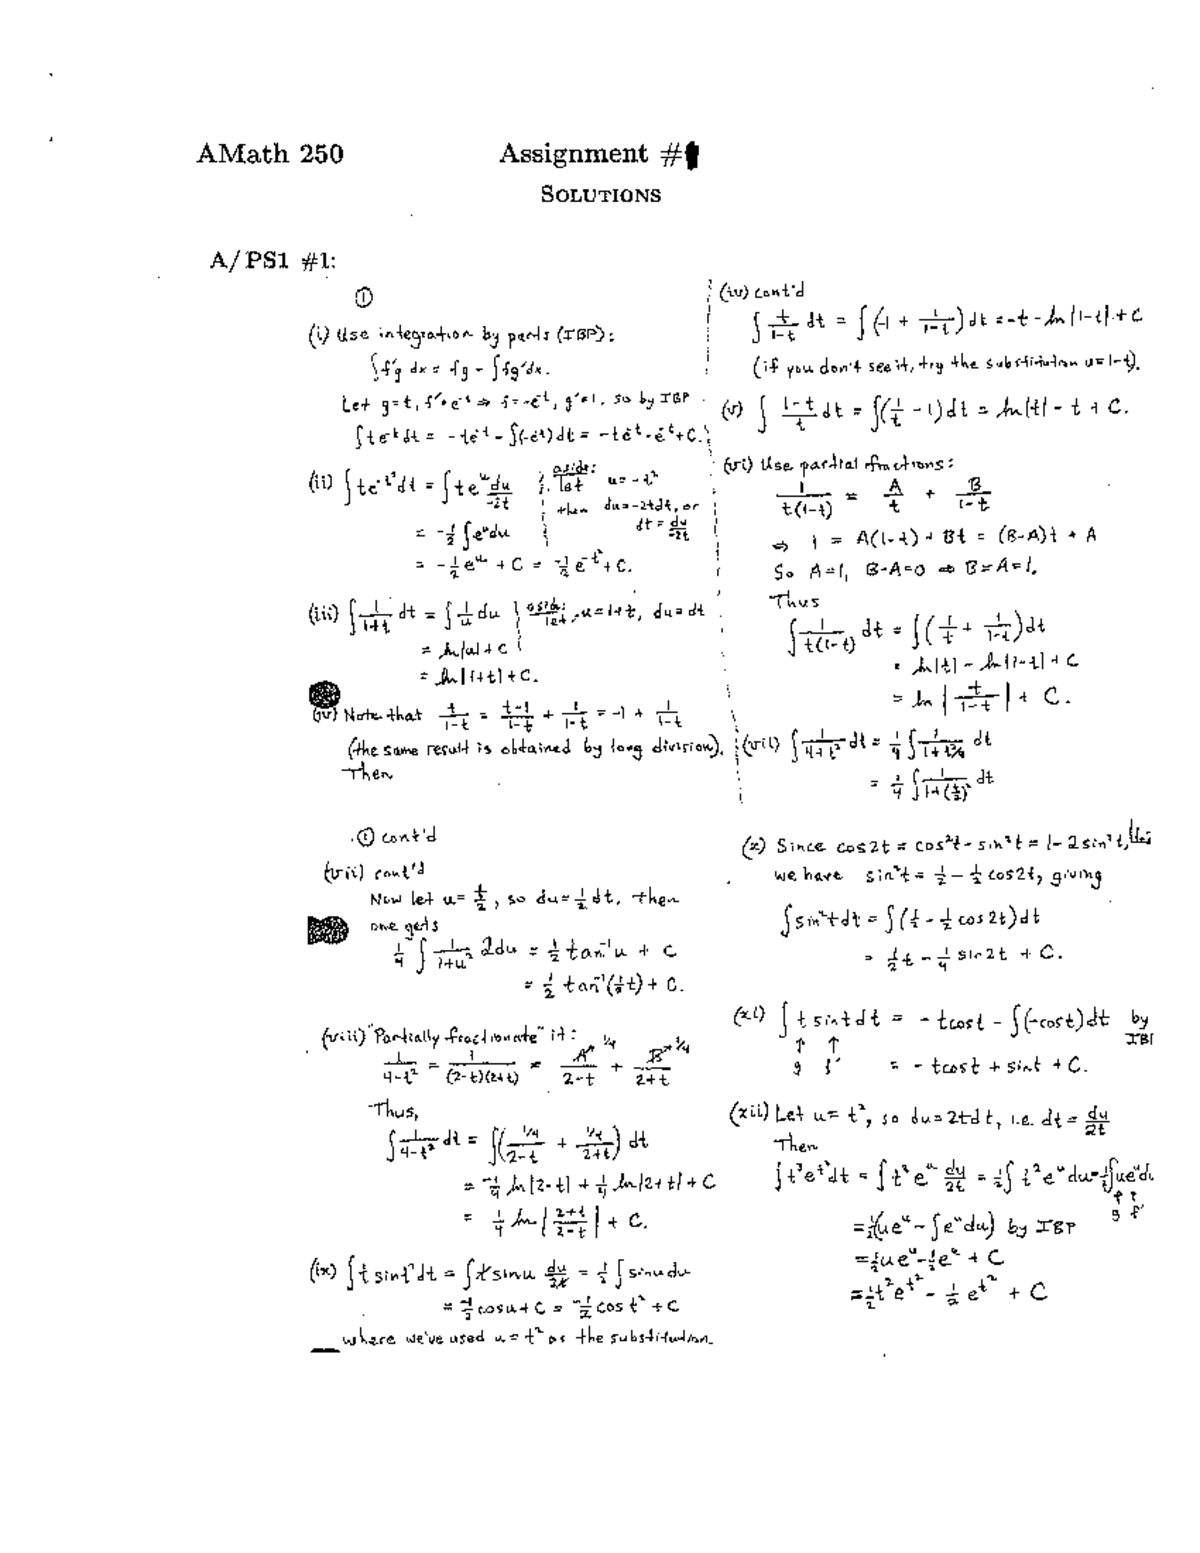 AMath 250 Assignment #1
SOLUTIONS
A/PS1 #1:
①
(i) Use integration by parts (IBP):
∫f'g dx = fg - ∫fg'dx.
Let g=t, f'=e^-t ⇒ f=-e^-t, g'=1, so by IBP
∫te^-t dt = -te^-t - ∫(-e^-t)dt = -te^-t - e^-t + C.
(ii) ∫te^-t² dt = ∫te^u du/-2t aside: let u=-t²
then du=-2tdt, or
dt = du/-2t
= -1/2 ∫e^u du
= -1/2 e^u + C = -1/2 e^-t² + C.
(iii) ∫1/(1+t) dt = ∫1/u du aside: let u=1+t, du=dt
= ln|u| + C
= ln|1+t| + C.
(iv) Note that t/(1-t) = (t-1)/(1-t) + 1/(1-t) = -1 + 1/(1-t)
(the same result is obtained by long division).
Then
(iv) cont'd
∫ t/(1-t) dt = ∫(-1 + 1/(1-t))dt = -t - ln|1-t| + C
(if you don't see it, try the substitution u=1-t).
(v) ∫ (1-t)/t dt = ∫(1/t - 1)dt = ln|t| - t + C.
(vi) Use partial fractions:
1/(t(1-t)) = A/t + B/(1-t)
⇒ 1 = A(1-t) + Bt = (B-A)t + A
So A=1, B-A=0 ⇒ B=A=1.
Thus
∫1/(t(1-t)) dt = ∫(1/t + 1/(1-t))dt
= ln|t| - ln|1-t| + C
= ln|t/(1-t)| + C.
(vii) ∫1/(4+t²) dt = 1/4 ∫1/(1+t²/4) dt
= 1/4 ∫1/(1+(t/2)²) dt
① cont'd
(vii) cont'd
Now let u = t/2, so du = 1/2 dt, then
one gets
1/4 ∫ 1/(1+u²) 2du = 1/2 tan^-1 u + C
= 1/2 tan^-1(1/2 t) + C.
(viii) "Partially fractionate" it:
1/(4-t²) = 1/((2-t)(2+t)) = A↗1/4/(2-t) + B↗1/4/(2+t)
Thus,
∫1/(4-t²) dt = ∫((1/4)/(2-t) + (1/4)/(2+t)) dt
= -1/4 ln|2-t| + 1/4 ln|2+t| + C
= 1/4 ln|(2+t)/(2-t)| + C.
(ix) ∫t sint² dt = ∫t sinu du/2t = 1/2 ∫sinu du
= -1/2 cosu + C = -1/2 cos t² + C
where we've used u = t² as the substitution.
(x) Since cos2t = cos²t - sin²t = 1 - 2sin²t,
we have sin²t = 1/2 - 1/2 cos2t, giving
∫sin²t dt = ∫(1/2 - 1/2 cos2t)dt
= 1/2 t - 1/4 sin2t + C.
(xi) ∫ t sint dt = -tcost - ∫(-cost)dt by
↑ ↑ IBP
g f' = -tcost + sint + C.
(xii) Let u = t², so du = 2tdt, i.e. dt = du/2t
Then
∫t³e^t² dt = ∫t³ e^u du/2t = 1/2 ∫t² e^u du = 1/2 ∫ue^u du
↑ ↑
g f'
= 1/2(ue^u - ∫e^u du) by IBP
= 1/2 ue^u - 1/2 e^u + C
= 1/2 t²e^t² - 1/2 e^t² + C